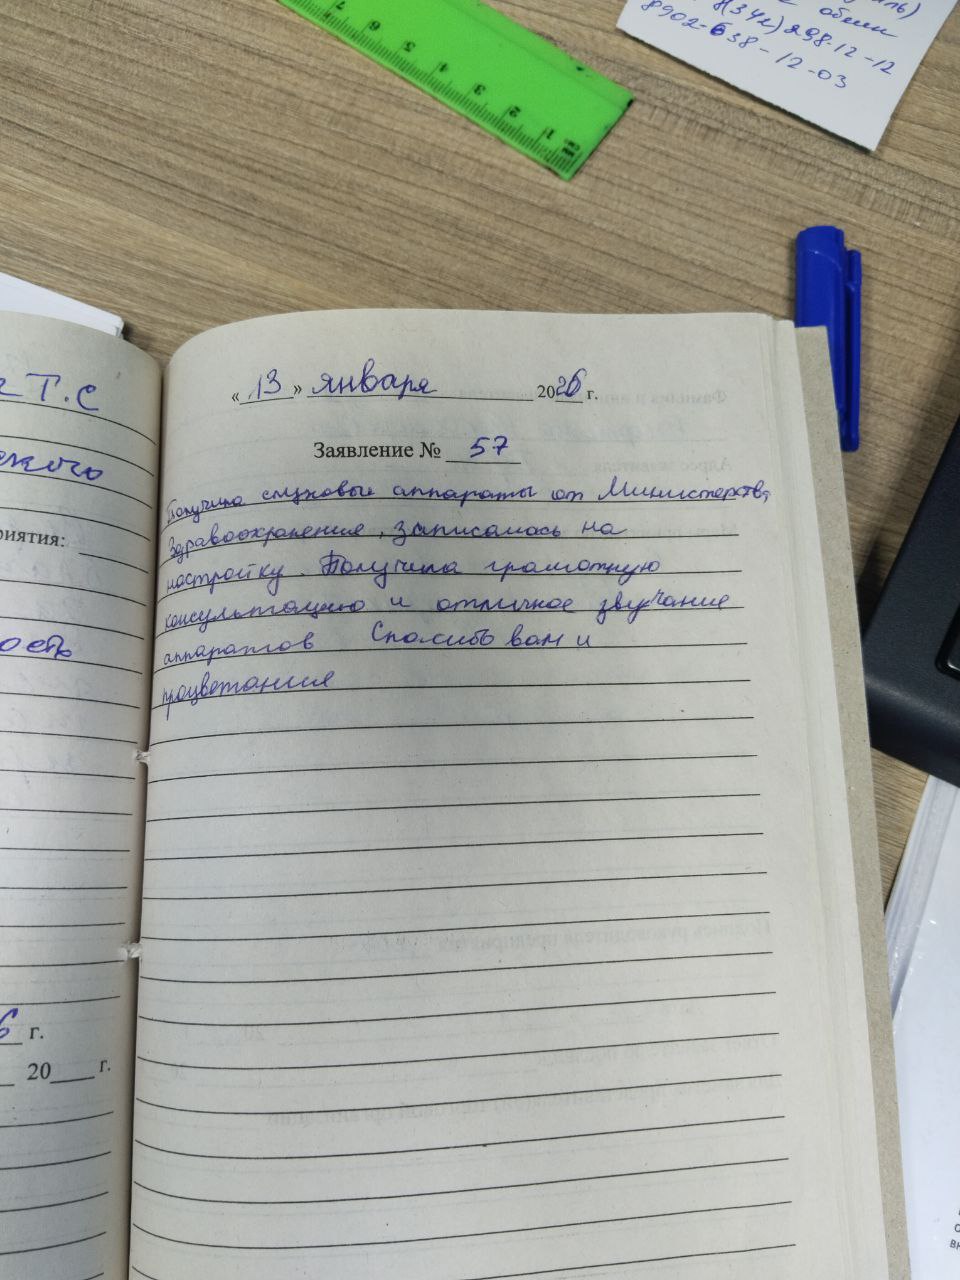 обмен
8(342)298-12-12
8902-638-12-03
7 6 5 4 3 2 1
Т.С
«13» января 2026 г.
Заявление № 57
Получила слуховые аппараты от Министерства
Здравоохранения, записалась на
настройку. Получила грамотную
консультацию и отличное звучание
аппаратов Спасибо вам и
процветания
риятия:
ость
6 г.
20 г.